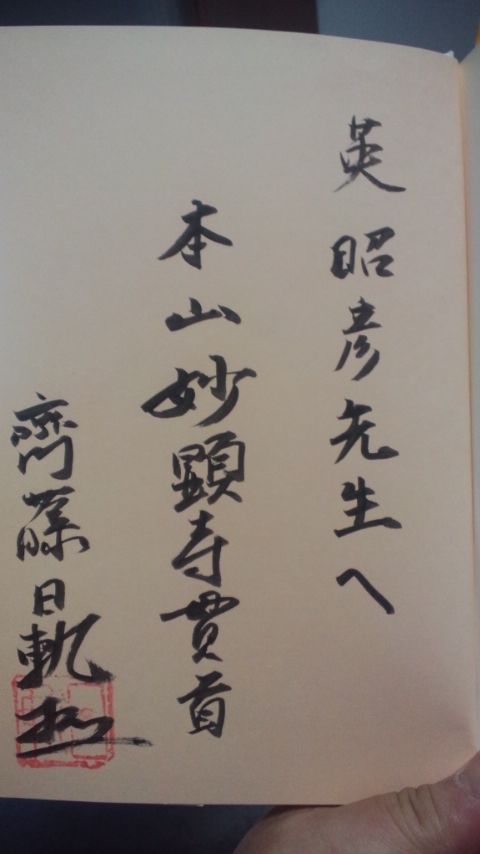 英昭彦先生へ
本山妙顕寺貫首
齋藤日軌